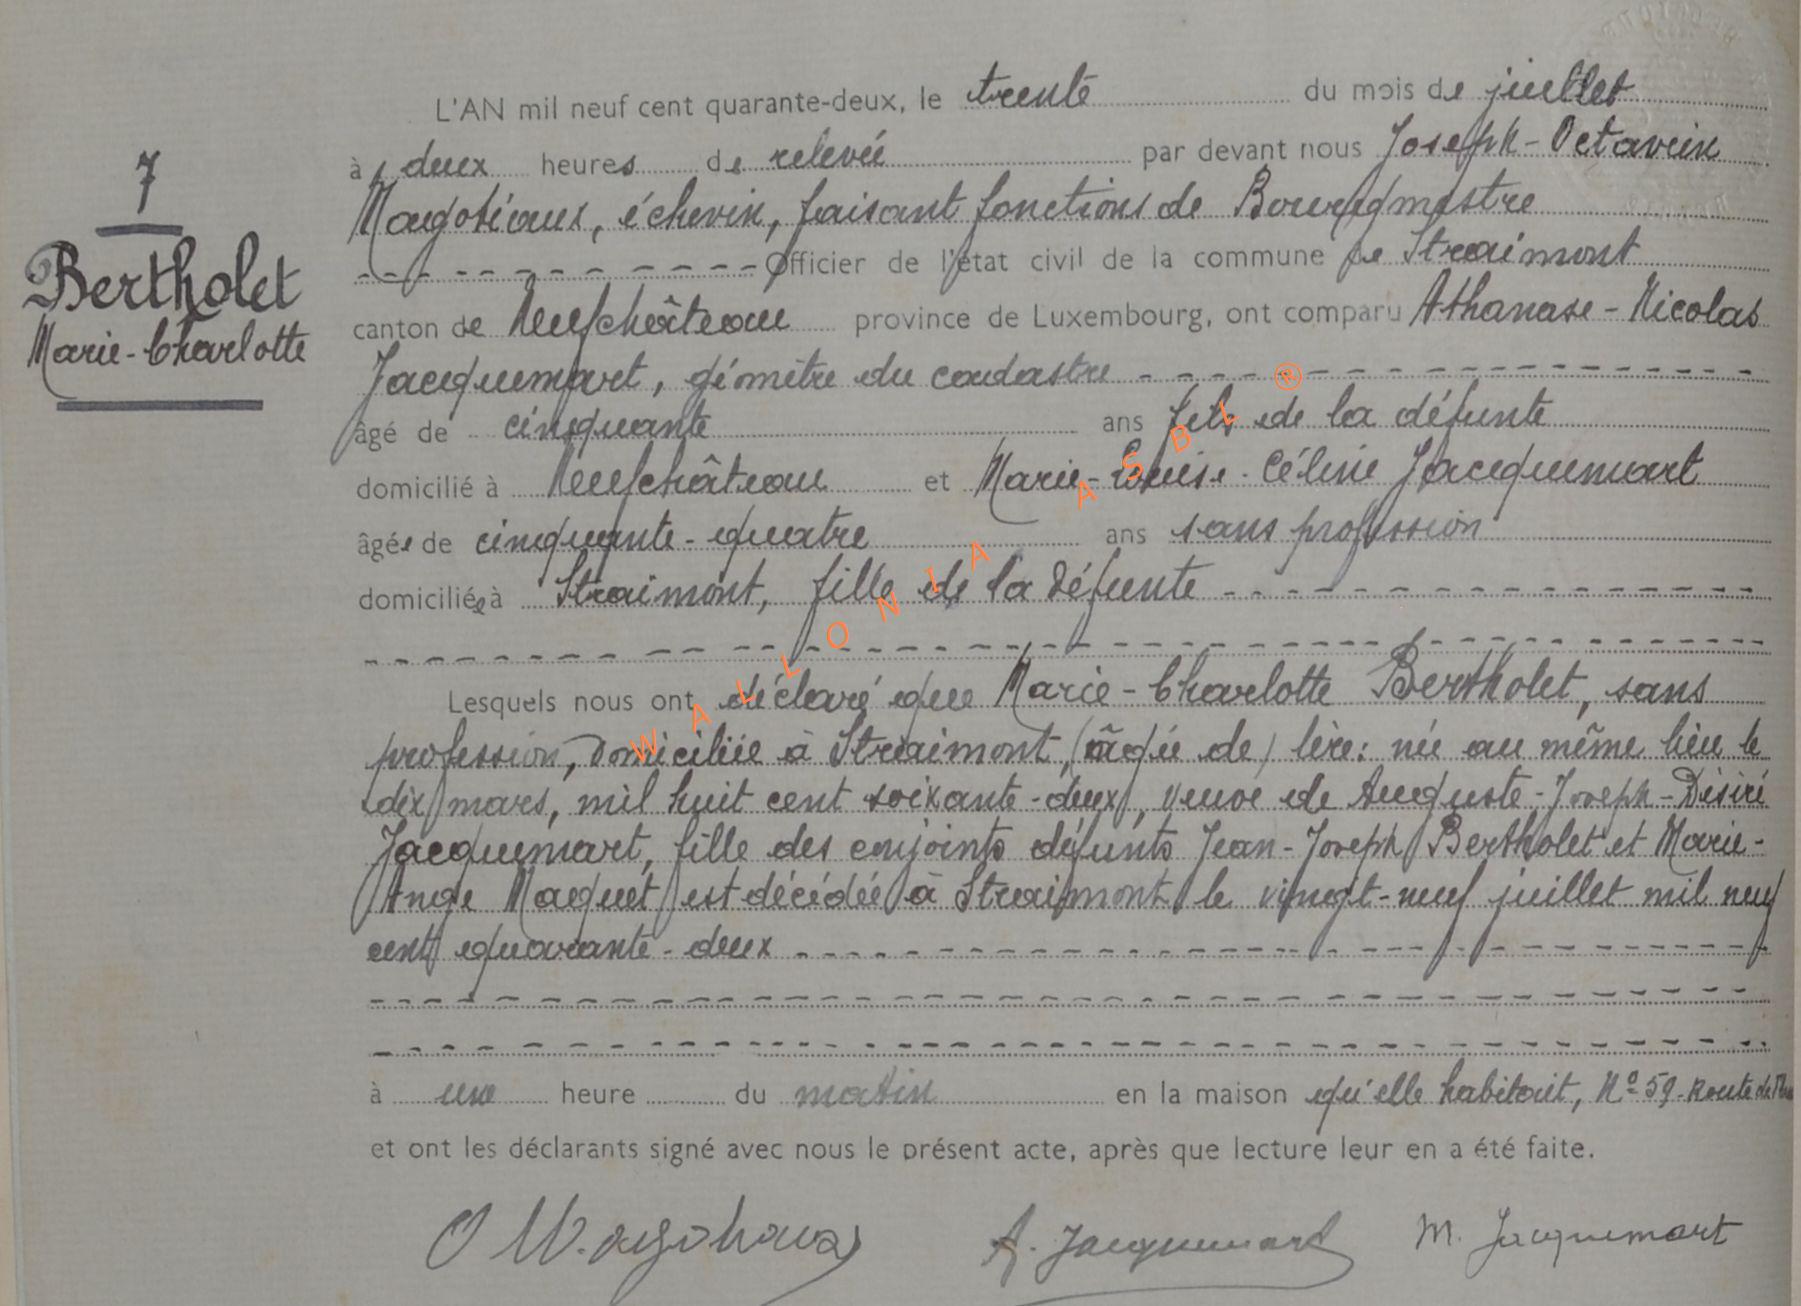 L'AN mil neuf cent quarante-deux, le trente du mois de juillet
à deux heures de relevée par devant nous Joseph-Octavien
7
Magotiaux, échevin, faisant fonctions de Bourgmestre
Officier de l'état civil de la commune de Straimont
Bertholet
Marie-Charlotte
canton de Neufchâteau province de Luxembourg, ont comparu Athanase-Nicolas
Jacquemart, géomètre du cadastre
âgé de cinquante ans fils de la défunte
domicilié à Neufchâteau et Marie-Louise-Céline Jacquemart
âgée de cinquante-quatre ans sans profession
domiciliée à Straimont, fille de la défunte
Lesquels nous ont déclaré que Marie-Charlotte Bertholet, sans
profession, domiciliée à Straimont, (âgée de) lire: née au même lieu le
dix mars, mil huit cent soixante-deux, veuve de Auguste-Joseph-Désiré
Jacquemart, fille des conjoints défunts Jean-Joseph Bertholet et Marie-
Ange Maquet est décédée à Straimont le vingt-neuf juillet mil neuf
cent quarante-deux
à une heure du matin en la maison qu'elle habitait, Nº 59-Route de
et ont les déclarants signé avec nous le présent acte, après que lecture leur en a été faite.
A. Jacquemart M. Jacquemart
WALLONIA ASBL ®